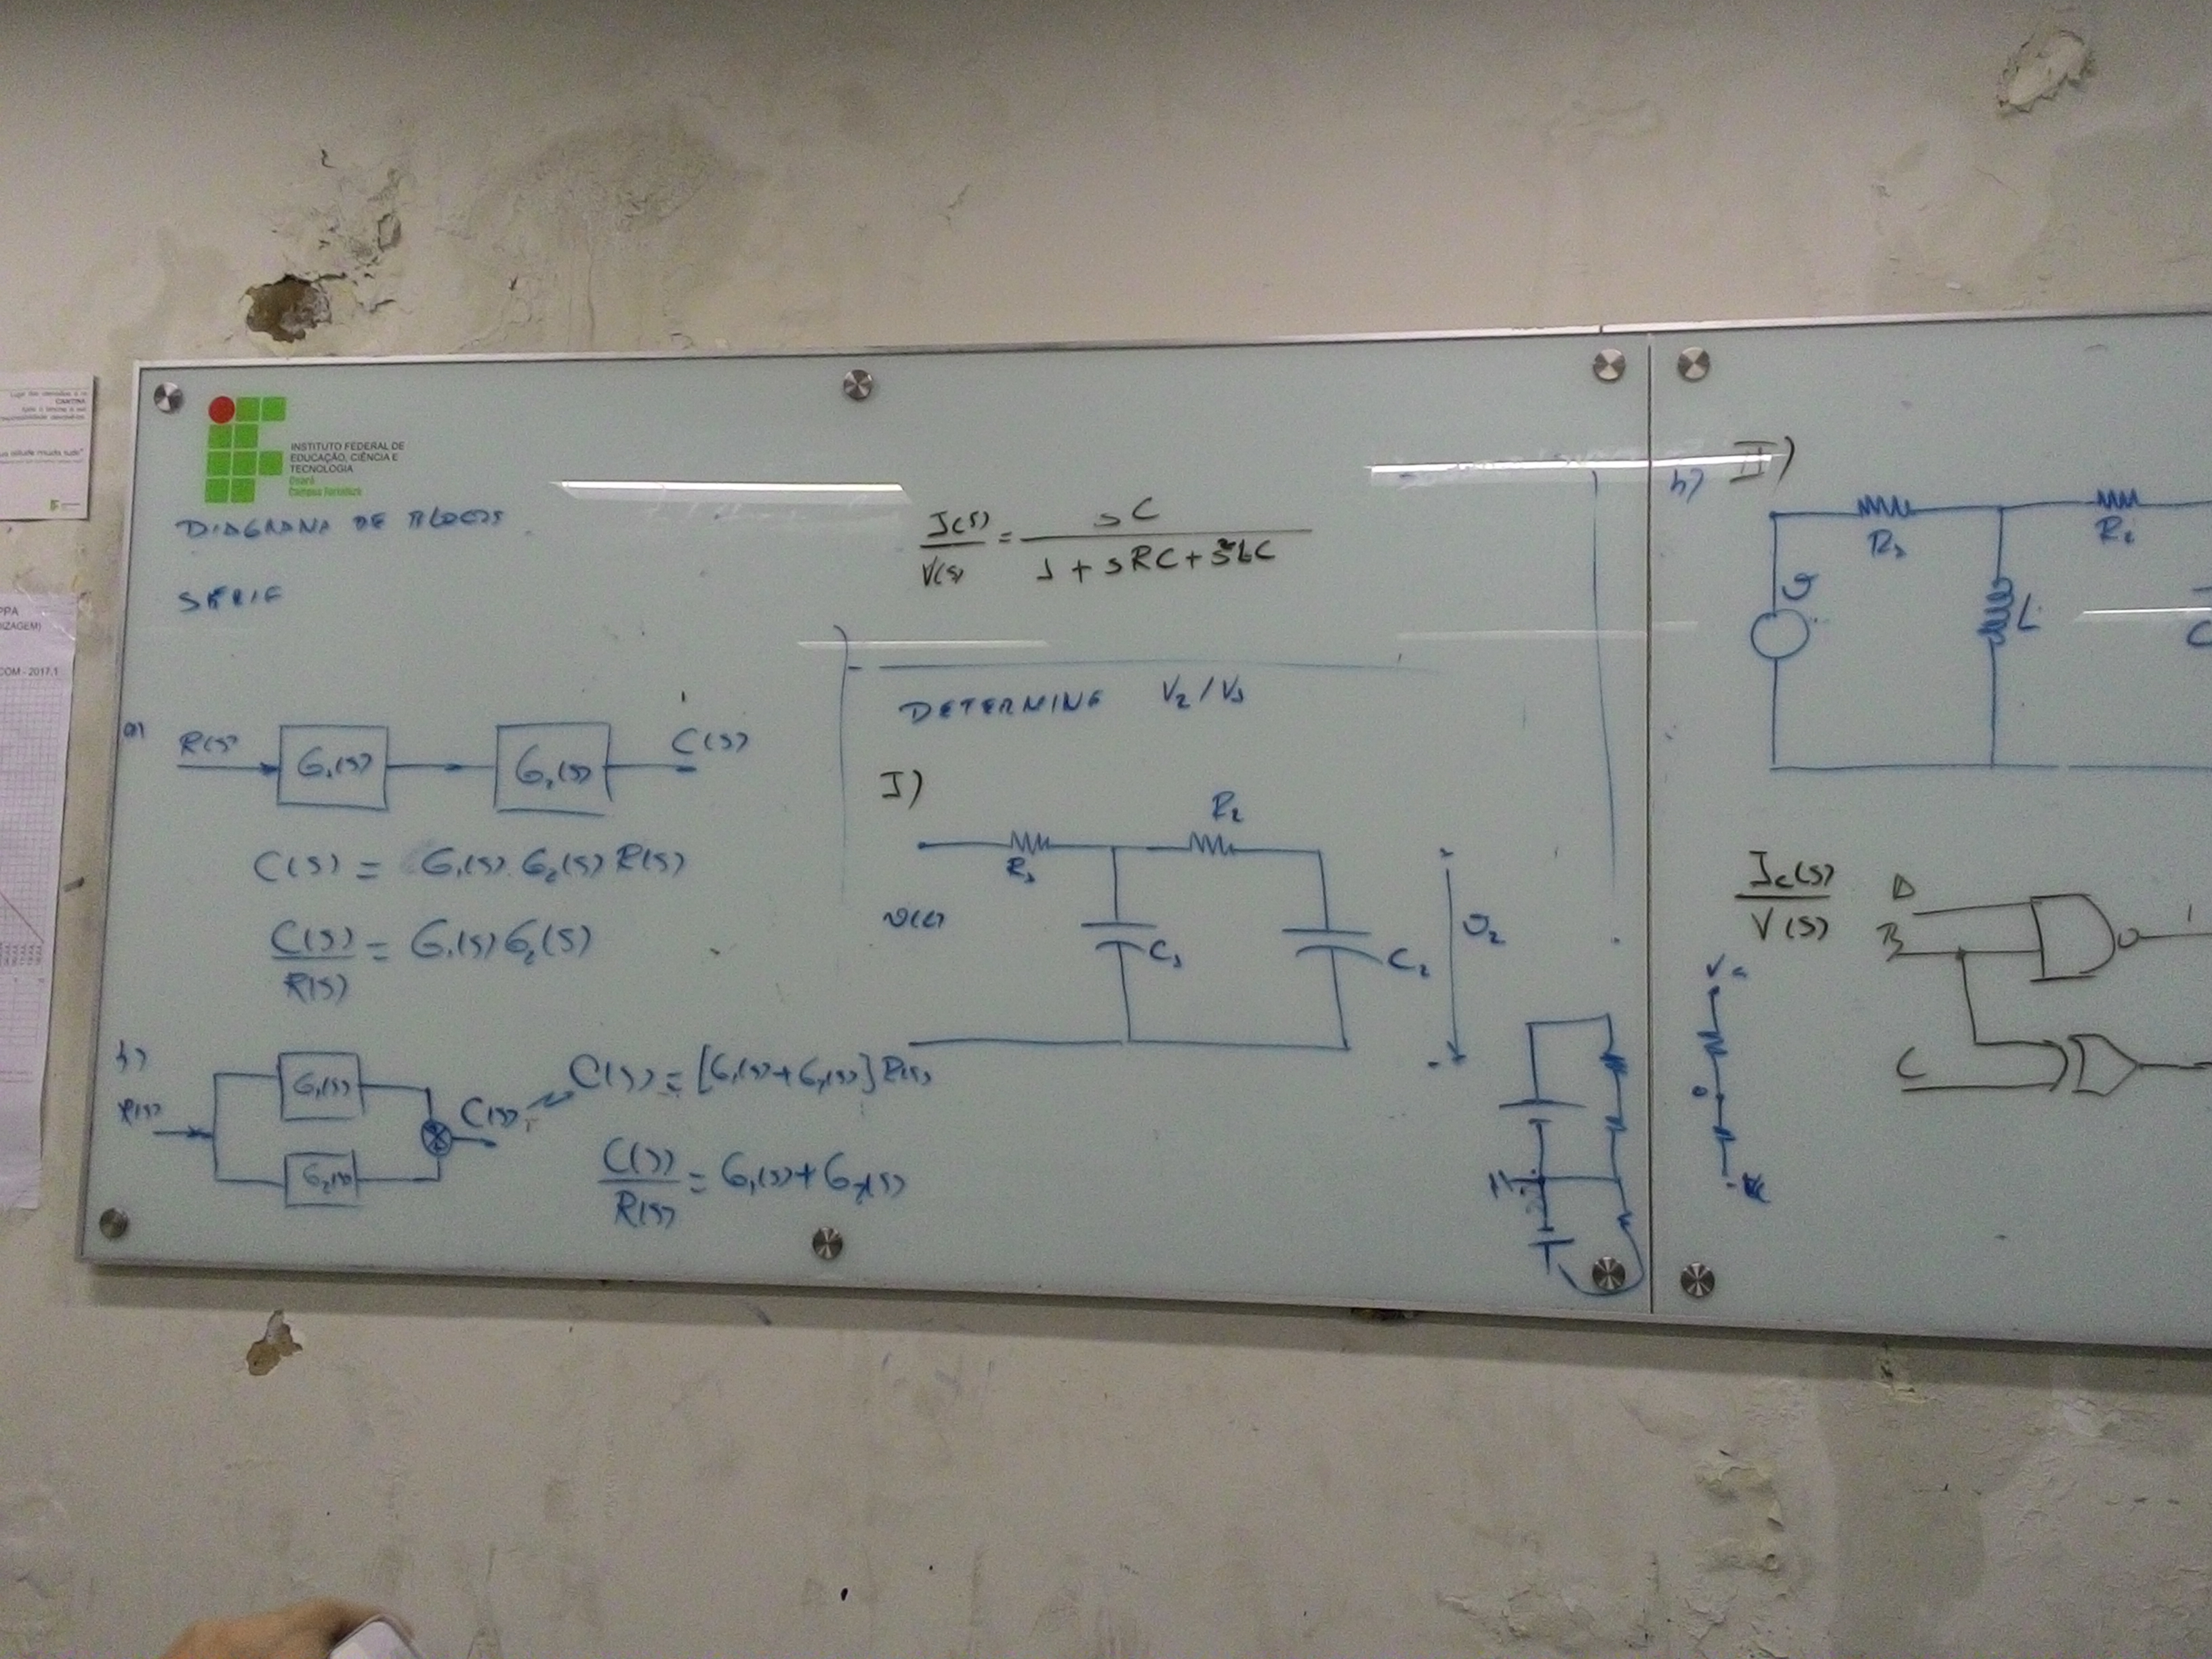 INSTITUTO FEDERAL DE
EDUCAÇÃO, CIÊNCIA E
TECNOLOGIA
Ceará
Campus Fortaleza
DIAGRAMA DE BLOCOS
SÉRIE
a)
R(s) G₁(s) G₂(s) C(s)
C(s) = G₁(s) G₂(s) R(s)
C(s)/R(s) = G₁(s) G₂(s)
b)
R(s) G₁(s) G₂(s) C(s)
C(s) = [G₁(s)+G₂(s)] R(s)
C(s)/R(s) = G₁(s)+G₂(s)
I(s)/V(s) = sC/(1 + sRC + s²LC)
DETERMINE V₂/V₁
I)
R₁ R₂
v(t) C₁ C₂ v₂
b) II)
R₁ R₂
v L C
Ic(s)/V(s)
B
C
CANTINA
PPA
COM - 2017.1